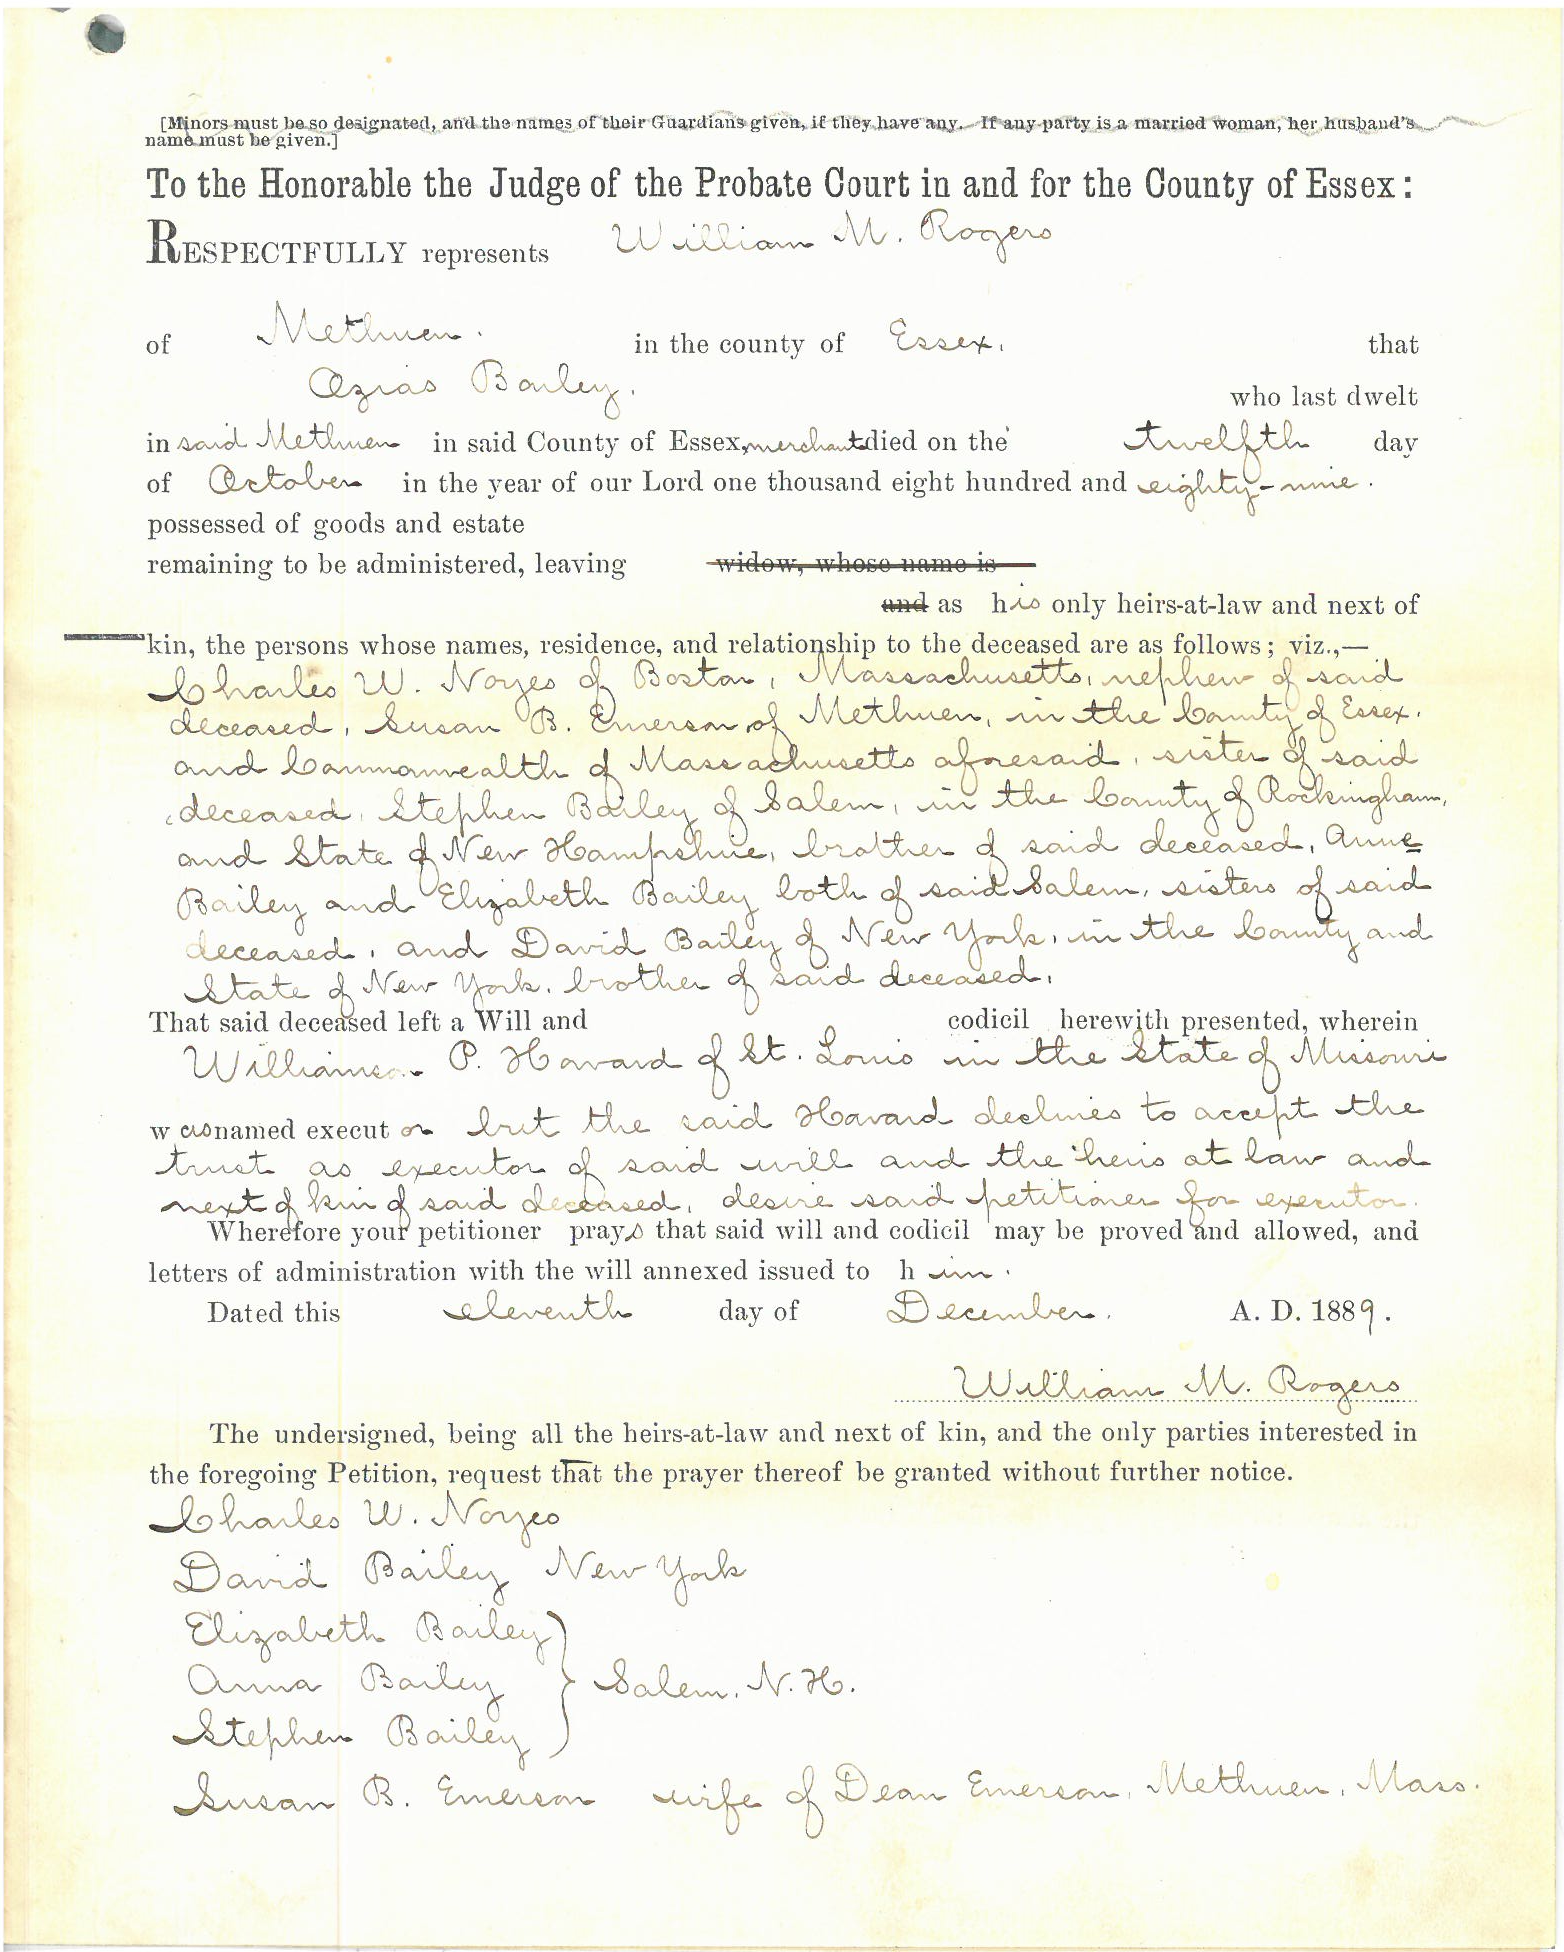 [Minors must be so designated, and the names of their Guardians given, if they have any. If any party is a married woman, her husband's
name must be given.]
To the Honorable the Judge of the Probate Court in and for the County of Essex:
RESPECTFULLY represents William M. Rogers
of Methuen. in the county of Essex, that
Ozias Bailey, who last dwelt
in said Methuen in said County of Essex, merchant died on the twelfth day
of October in the year of our Lord one thousand eight hundred and eighty-nine.
possessed of goods and estate
remaining to be administered, leaving widow, whose name is
and as his only heirs-at-law and next of
kin, the persons whose names, residence, and relationship to the deceased are as follows; viz.,—
Charles W. Noyes of Boston, Massachusetts, nephew of said
deceased, Susan B. Emerson of Methuen, in the County of Essex.
and Commonwealth of Massachusetts aforesaid, sister of said
deceased, Stephen Bailey of Salem, in the County of Rockingham,
and State of New Hampshire, brother of said deceased, Anne
Bailey and Elizabeth Bailey both of said Salem, sisters of said
deceased, and David Bailey of New York, in the County and
State of New York, brother of said deceased.
That said deceased left a Will and codicil herewith presented, wherein
Williamson P. Havard of St. Louis in the State of Missouri
was named executor but the said Havard declines to accept the
trust as executor of said will and the heirs at law and
next of kin of said deceased, desire said petitioner for executor.
Wherefore your petitioner prays that said will and codicil may be proved and allowed, and
letters of administration with the will annexed issued to him.
Dated this eleventh day of December. A. D. 1889.
William M. Rogers
The undersigned, being all the heirs-at-law and next of kin, and the only parties interested in
the foregoing Petition, request that the prayer thereof be granted without further notice.
Charles W. Noyes
David Bailey New York
Elizabeth Bailey
Anna Bailey } Salem, N. H.
Stephen Bailey
Susan B. Emerson wife of Dean Emerson, Methuen, Mass.